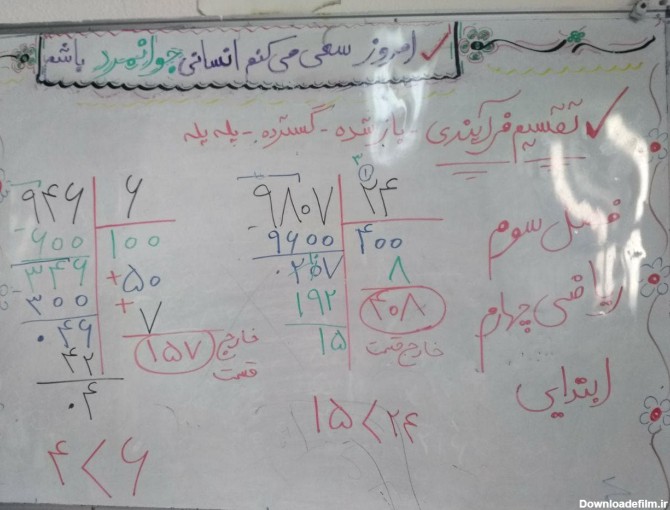 ✓ امروز سعی می کنم انسانی جوانمرد باشم
✓ تقسیم فرآیندی - باز شده - گسترده - پله پله
فصل سوم
ریاضی چهارم
ابتدایی
۳ ①
۹۸۰۷ | ۲۴
- ۹۶۰۰ | ۴۰۰
۰۲۰۷ | ۸
۱۹۲ | ۴۰۸
۱۵ خارج قسمت
۱۵ < ۲۴
۹۴۶ | ۶
- ۶۰۰ | ۱۰۰
۳۴۶ | + ۵۰
۳۰۰ | + ۷
۰۴۶ | ۱۵۷ خارج قسمت
۴۲
۰۴
۴ < ۶
Downloadefilm.ir